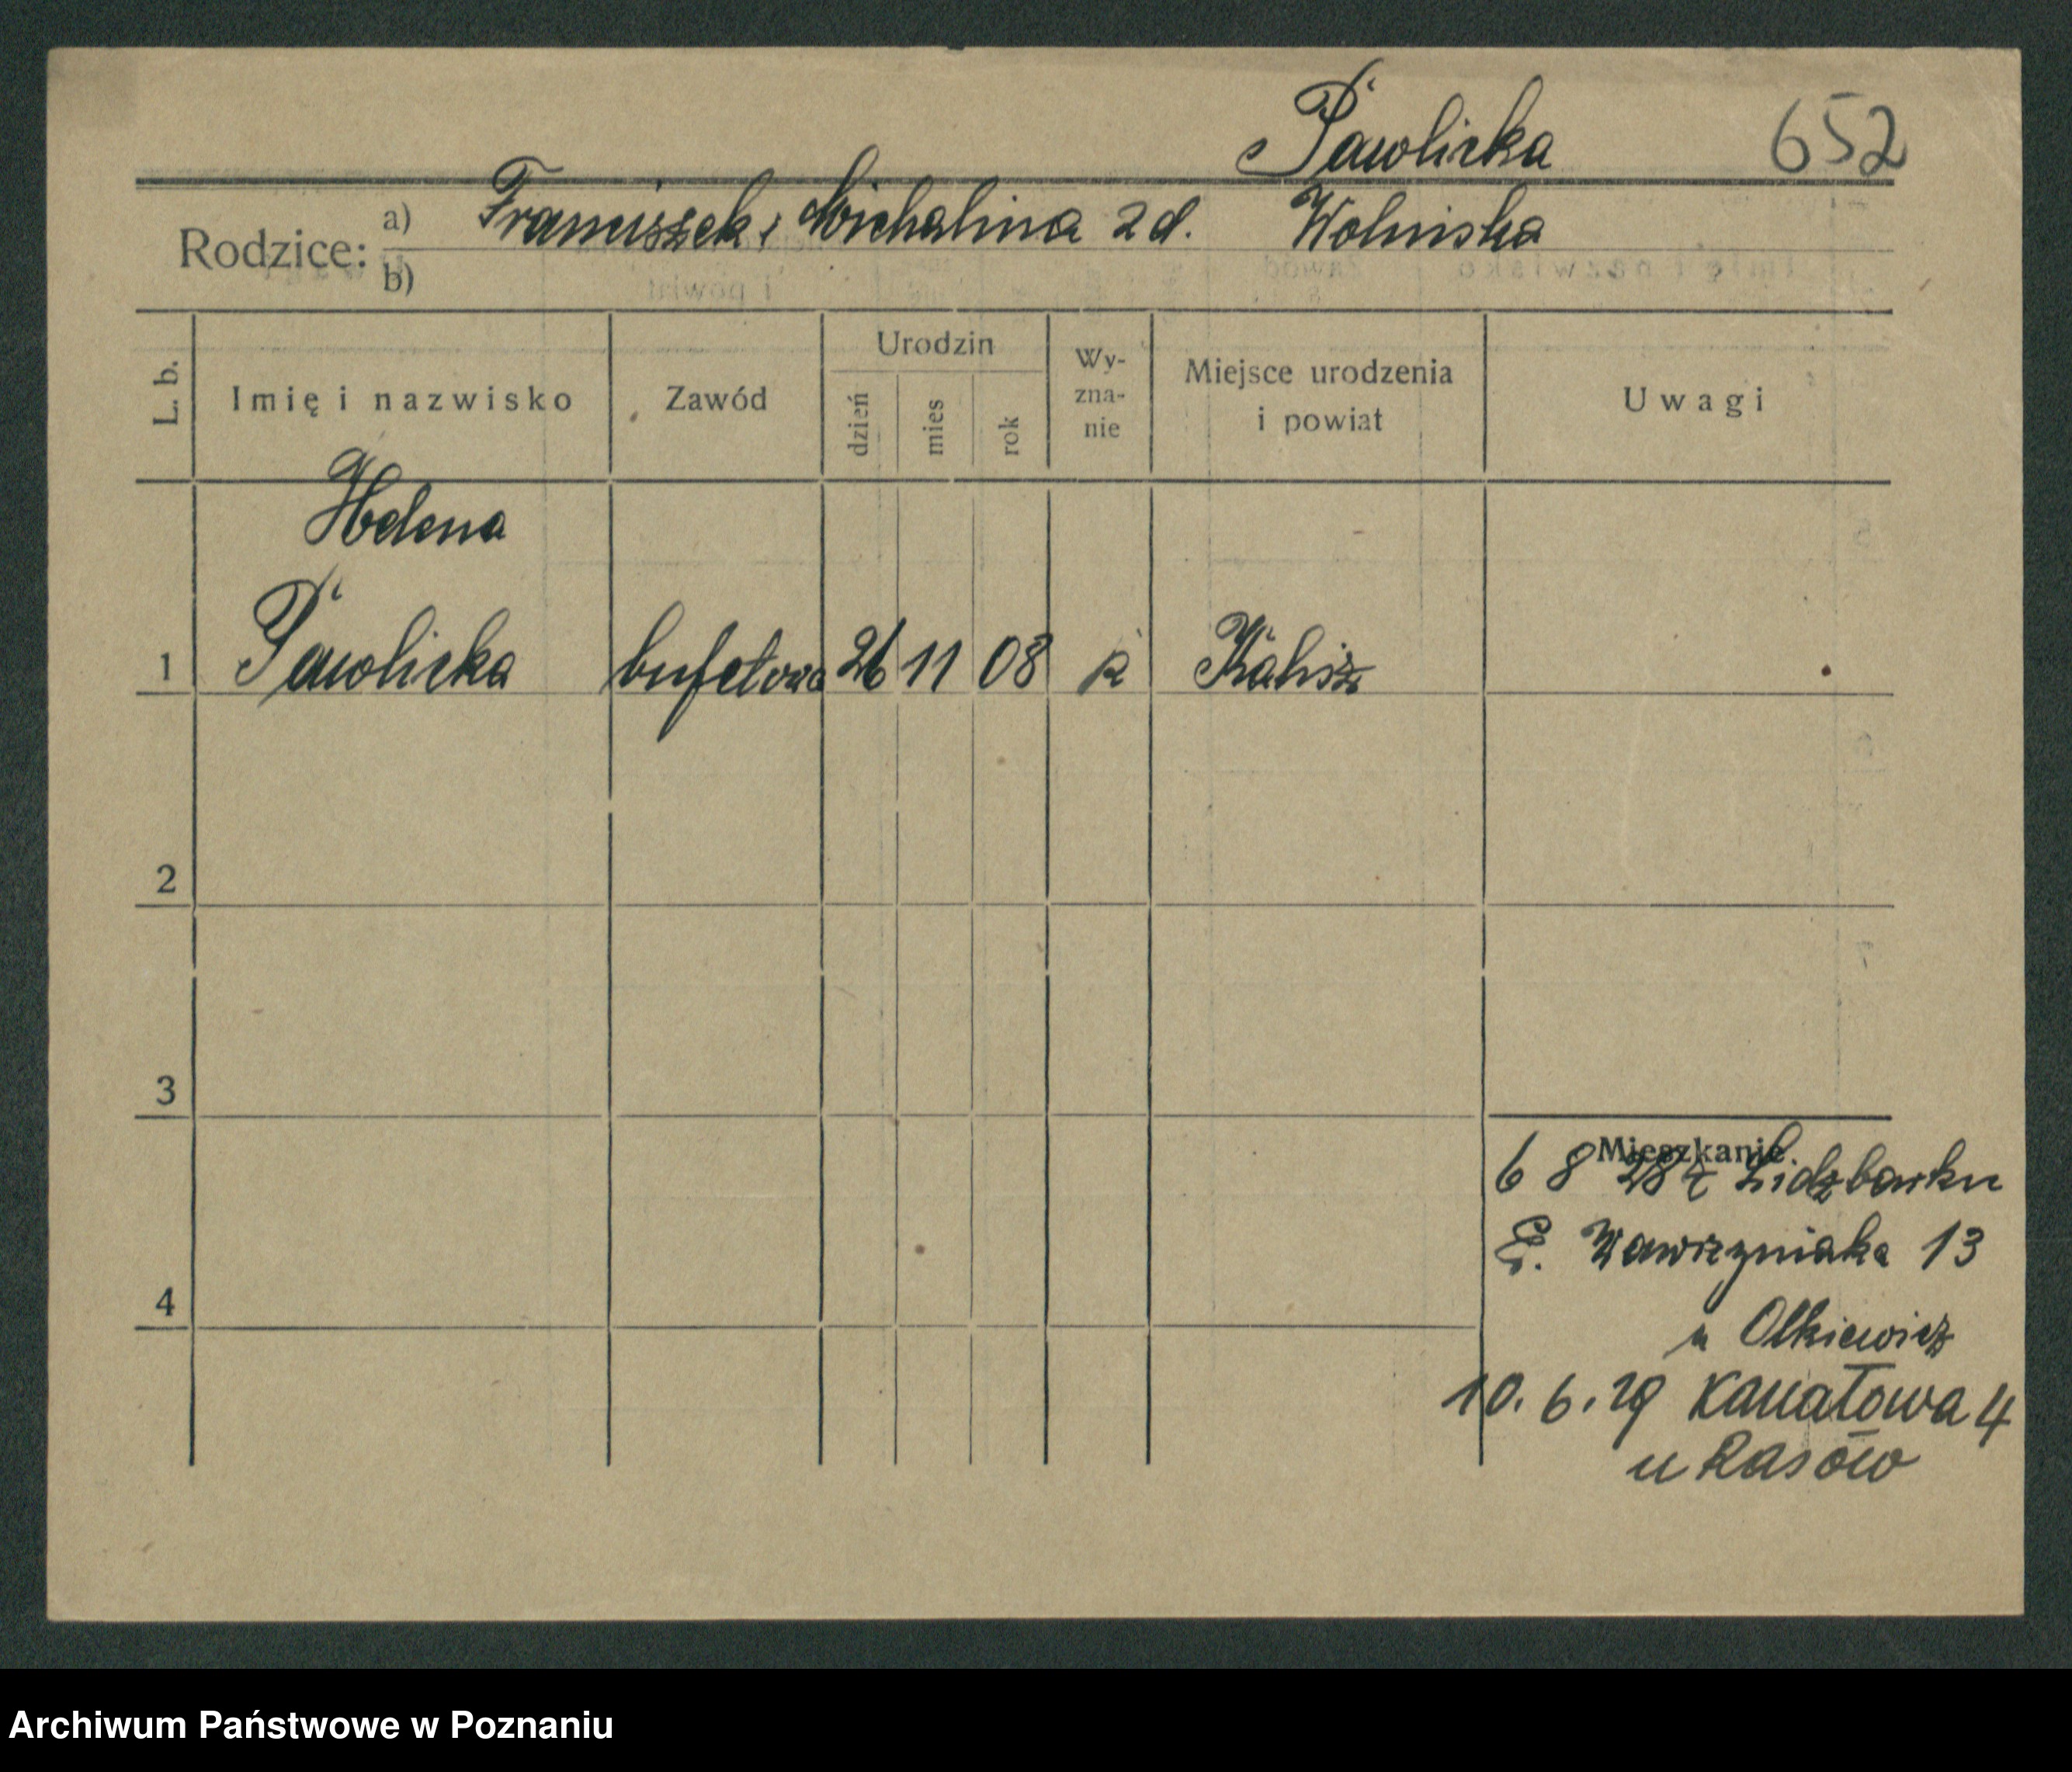 Pawlicka 652
Rodzice: a) Franciszek i Michalina z d. Wolniska
b)
L. b. Imię i nazwisko Zawód Urodzin dzień mies rok Wy-zna-nie Miejsce urodzenia i powiat Uwagi
Helena
1 Pawlicka bufetowa 26 11 08 k Kalisz
2
3
Mieszkanie.
6 8 28 z Lidzbarku
Wawrzyniaka 13
4
u Olkiewicz
10. 6. 29 Kanałowa 4
u Rasów
Archiwum Państwowe w Poznaniu